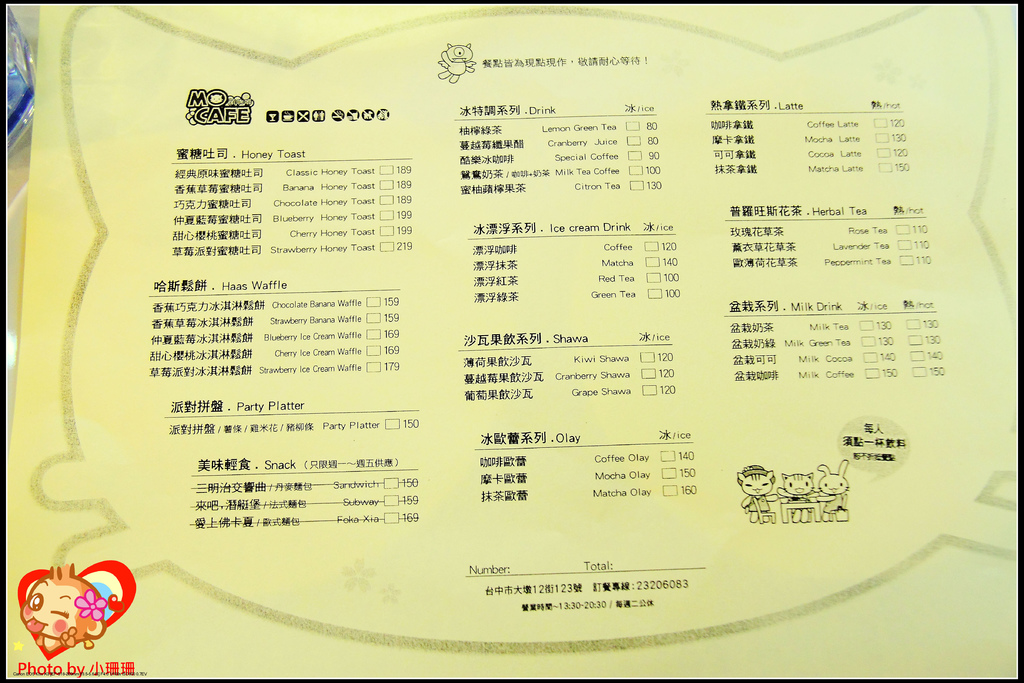 餐點皆為現點現作，敬請耐心等待！
MO CAFE
蜜糖吐司 . Honey Toast
經典原味蜜糖吐司 Classic Honey Toast 189
香蕉草莓蜜糖吐司 Banana Honey Toast 189
巧克力蜜糖吐司 Chocolate Honey Toast 189
仲夏藍莓蜜糖吐司 Blueberry Honey Toast 199
甜心櫻桃蜜糖吐司 Cherry Honey Toast 199
草莓派對蜜糖吐司 Strawberry Honey Toast 219
哈斯鬆餅 . Haas Waffle
香蕉巧克力冰淇淋鬆餅 Chocolate Banana Waffle 159
香蕉草莓冰淇淋鬆餅 Strawberry Banana Waffle 159
仲夏藍莓冰淇淋鬆餅 Blueberry Ice Cream Waffle 169
甜心櫻桃冰淇淋鬆餅 Cherry Ice Cream Waffle 169
草莓派對冰淇淋鬆餅 Strawberry Ice Cream Waffle 179
派對拼盤 . Party Platter
派對拼盤 / 薯條 / 雞米花 / 豬柳條 Party Platter 150
美味輕食 . Snack （只限週一～週五供應）
三明治交響曲 / 丹麥麵包 Sandwich 150
來吧，潛艇堡 / 法式麵包 Subway 159
愛上佛卡夏 / 歐式麵包 Foka Xia 169
冰特調系列 . Drink 冰/ice
柚檸綠茶 Lemon Green Tea 80
蔓越莓纖果醋 Cranberry Juice 80
酷樂冰咖啡 Special Coffee 90
鴛鴦奶茶 / 咖啡+奶茶 Milk Tea Coffee 100
蜜柚蘋檸果茶 Citron Tea 130
冰漂浮系列 . Ice cream Drink 冰/ice
漂浮咖啡 Coffee 120
漂浮抹茶 Matcha 140
漂浮紅茶 Red Tea 100
漂浮綠茶 Green Tea 100
沙瓦果飲系列 . Shawa 冰/ice
薄荷果飲沙瓦 Kiwi Shawa 120
蔓越莓果飲沙瓦 Cranberry Shawa 120
葡萄果飲沙瓦 Grape Shawa 120
冰歐蕾系列 . Olay 冰/ice
咖啡歐蕾 Coffee Olay 140
摩卡歐蕾 Mocha Olay 150
抹茶歐蕾 Matcha Olay 160
熱拿鐵系列 . Latte 熱/hot
咖啡拿鐵 Coffee Latte 120
摩卡拿鐵 Mocha Latte 130
可可拿鐵 Cocoa Latte 120
抹茶拿鐵 Matcha Latte 150
普羅旺斯花茶 . Herbal Tea 熱/hot
玫瑰花草茶 Rose Tea 110
薰衣草花草茶 Lavender Tea 110
歐薄荷花草茶 Peppermint Tea 110
盆栽系列 . Milk Drink 冰/ice 熱/hot
盆栽奶茶 Milk Tea 130 130
盆栽奶綠 Milk Green Tea 130 130
盆栽可可 Milk Cocoa 140 140
盆栽咖啡 Milk Coffee 150 150
每人
須點一杯飲料
Number: Total:
台中市大墩12街123號 訂餐專線:23206083
營業時間~13:30-20:30 / 每週二公休
Photo by 小珊珊